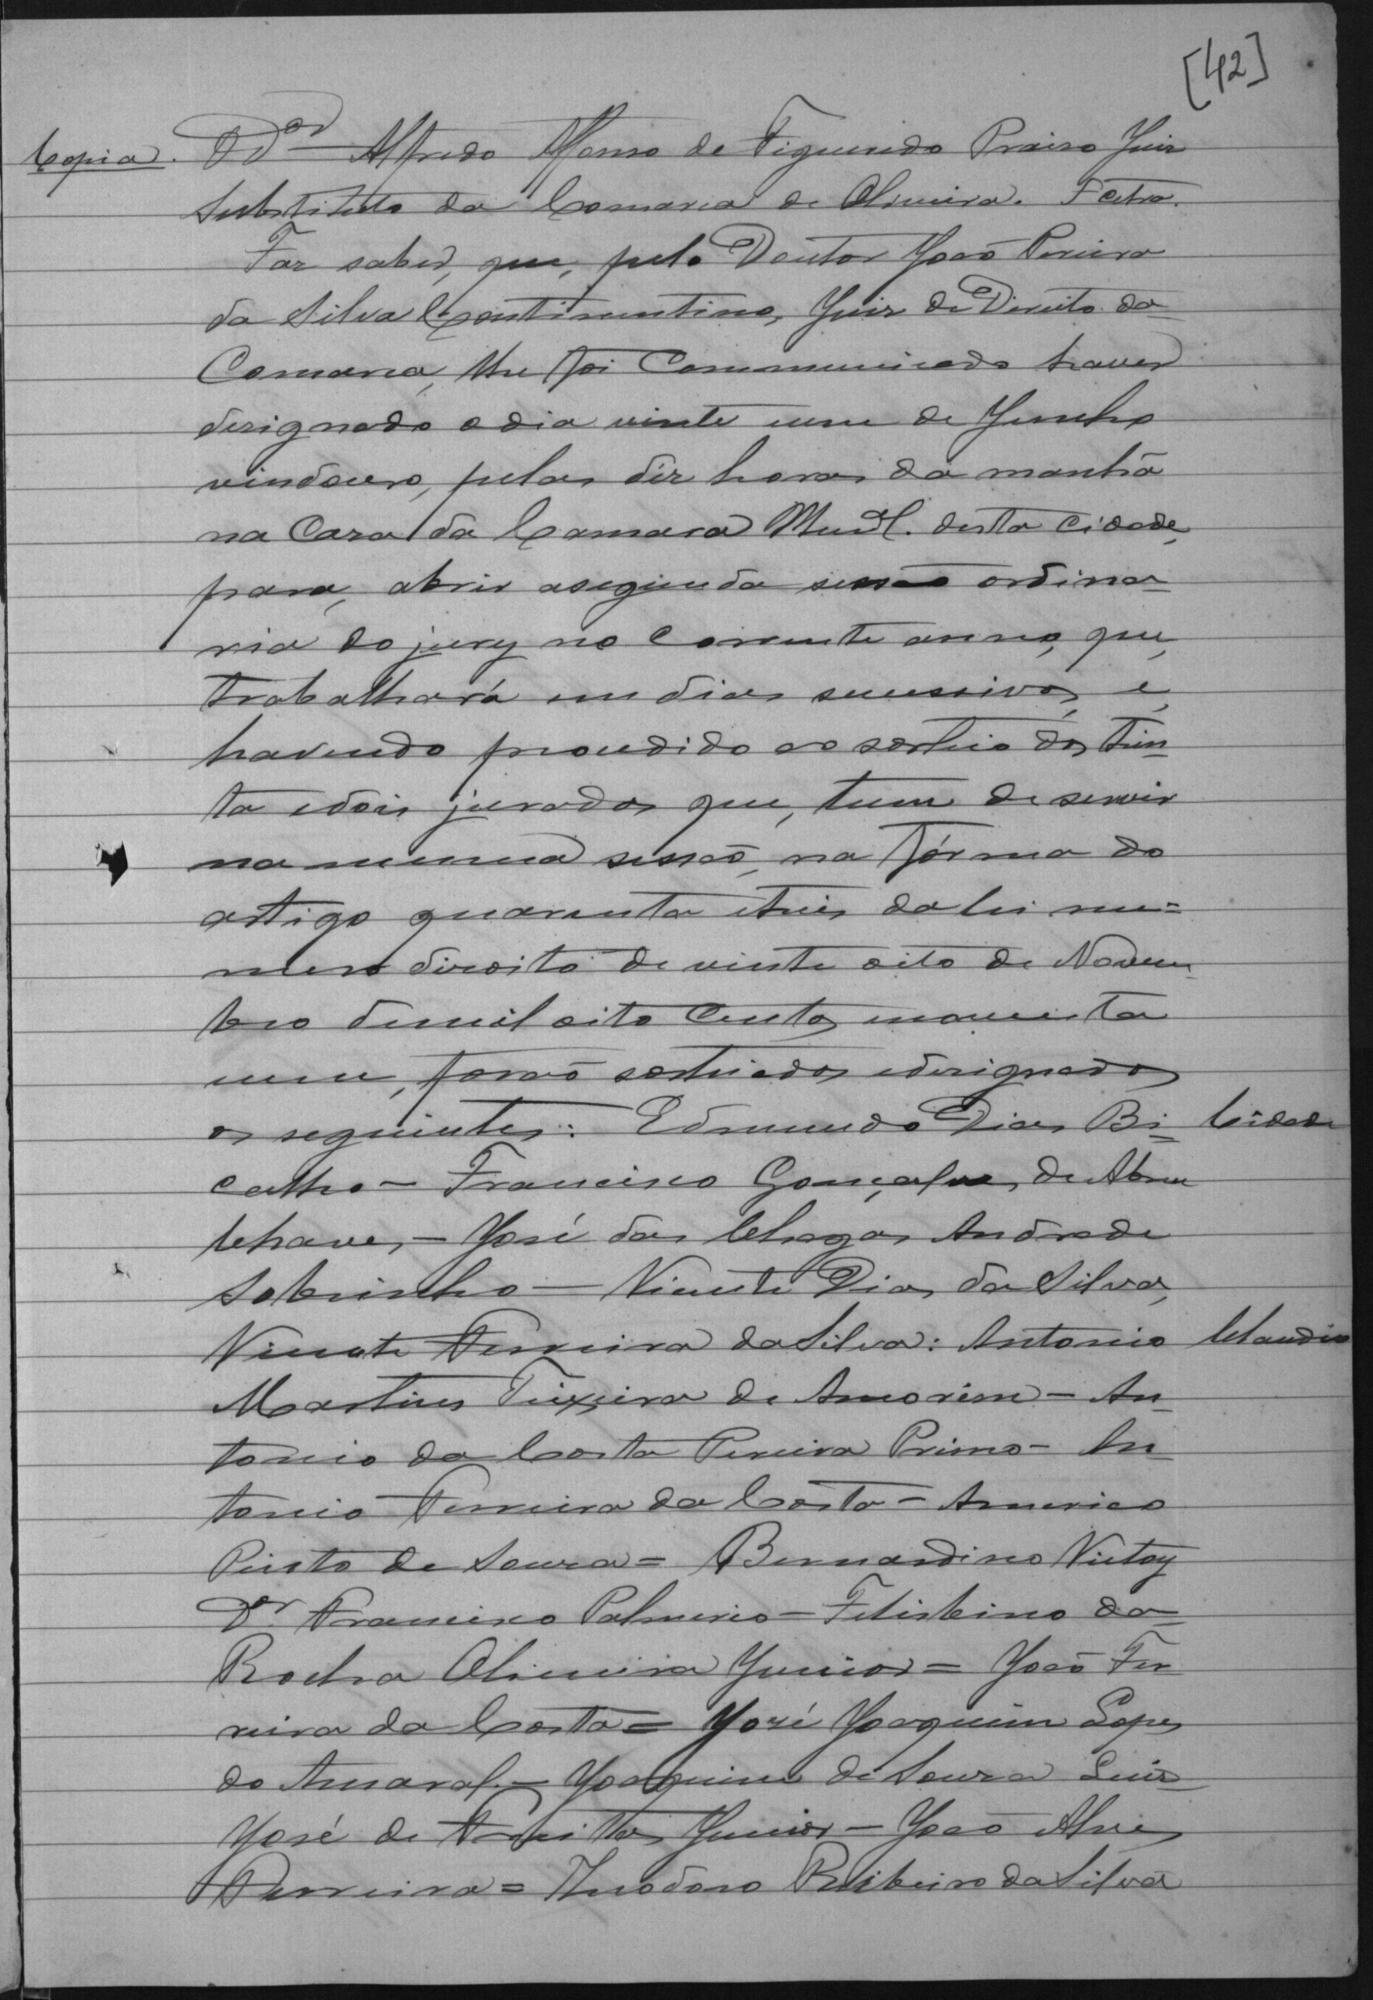 [42]
Copia. O Dor Alfredo Affonso de Figueiredo Praiso Juiz
Substituto da Comarca de Oliveira. Fcetra.
Faz saber, que, pelo Doutor João Pereira
da Silva Continentino, Juiz de Direito da
Comarca, lhe foi Communicado haver
designado o dia vinte um de Junho
vindouro, pelas déz horas da manhã
na Caza da Camara Mul. desta cidade,
para, abrir a segunda sessão ordina-
ria do jury no Corrente anno, que,
trabalhará em dias sucessivos, e,
havendo procedido ao sorteio dos trin-
ta e dois jurados que, teem de servir
na mesma sessão, na fórma do
artigo quarenta e tres da lei nu=
mero dezoito de vinte oito de Novem
bro de mil oito Centos e noventa
e um, forão sorteados e designados
os seguintes: Edmundo Dias Bi- Cidade
calho - Francisco Gonçalves de Abreu
Chaves, - José das Chagas Andrade
Sobrinho - Vicente Dias da Silva,
Vicente Ferreira da Silva: Antonio Claudio
Martins Teixeira de Amorim - An-
tonio da Costa Pereira Primo - An-
tonio Ferreira da Costa - Americo
Pinto de Souza = Bernardino Victoy
Dr. Francisco Palmerio - Felisbino da
Rocha Oliveira Junior = João Fer
reira da Costa = José Joaquim Lopes
do Amaral - Joaquim de Souza Luiz
José de Freitas Junior - João Alves
Ferreira = Theodoro Ribeiro da Silva